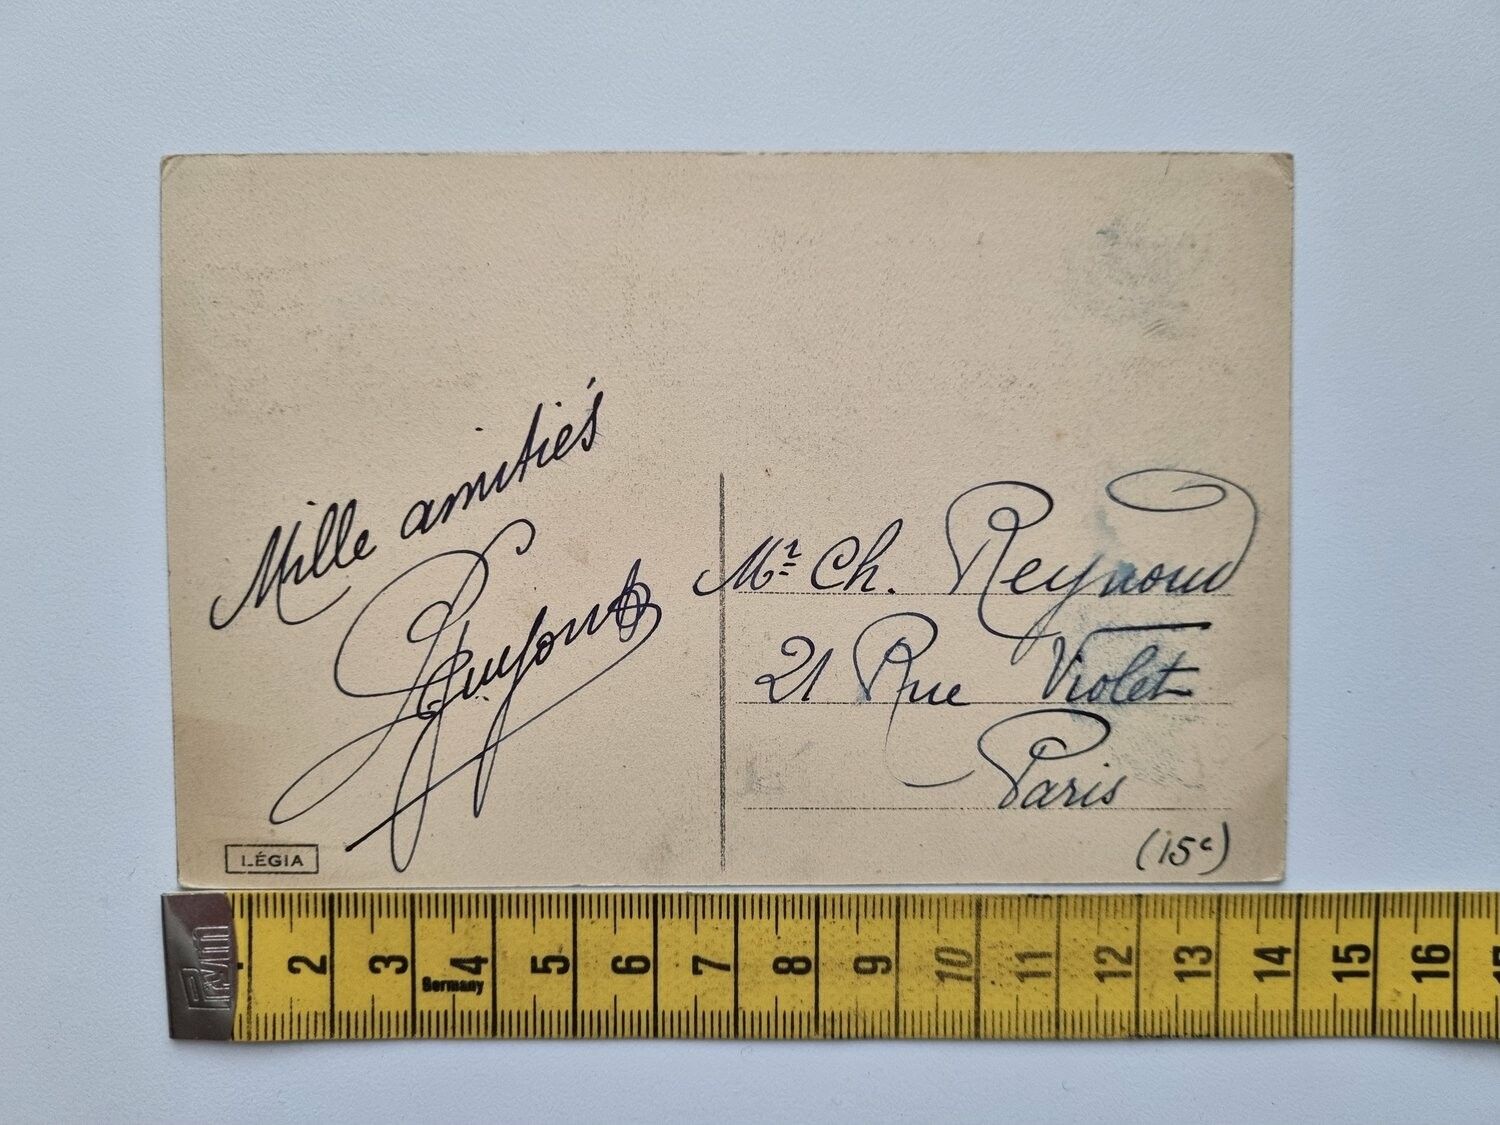 Mille amitiés
Mr Ch. Reynoud
21 Rue Violet
Paris
(15e)
LÉGIA
PWM
1 2 3 4 5 6 7 8 9 10 11 12 13 14 15 16
Germany